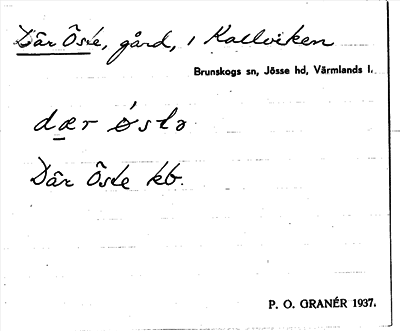 Där Öste, gård, i Kallviken
Brunskogs sn, Jösse hd, Värmlands l.
dær østə
Där Öste kb.
P. O. GRANÉR 1937.